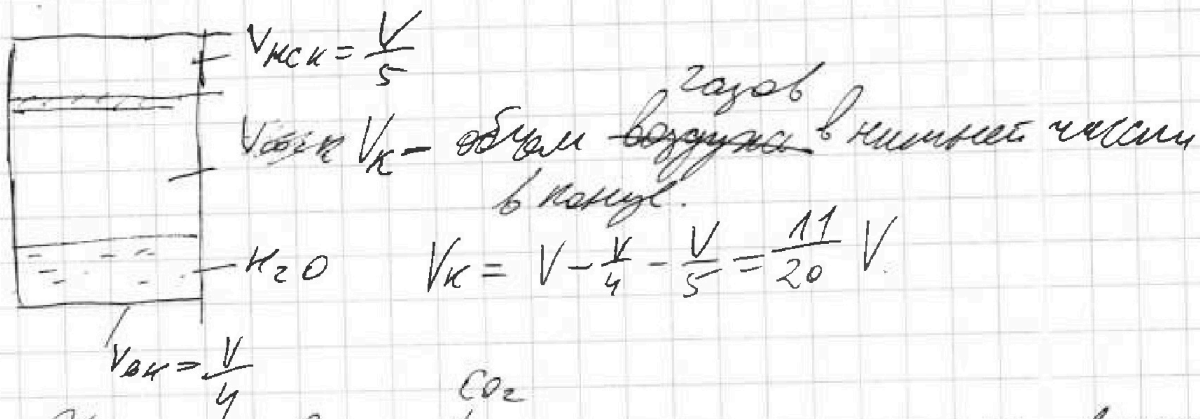 Vнск = V/5
газов
Vк – объем воздуха в нижней части
в конце.
H₂O
Vк = V – V/4 – V/5 = 11/20 V.
Vвк = V/4
CO₂